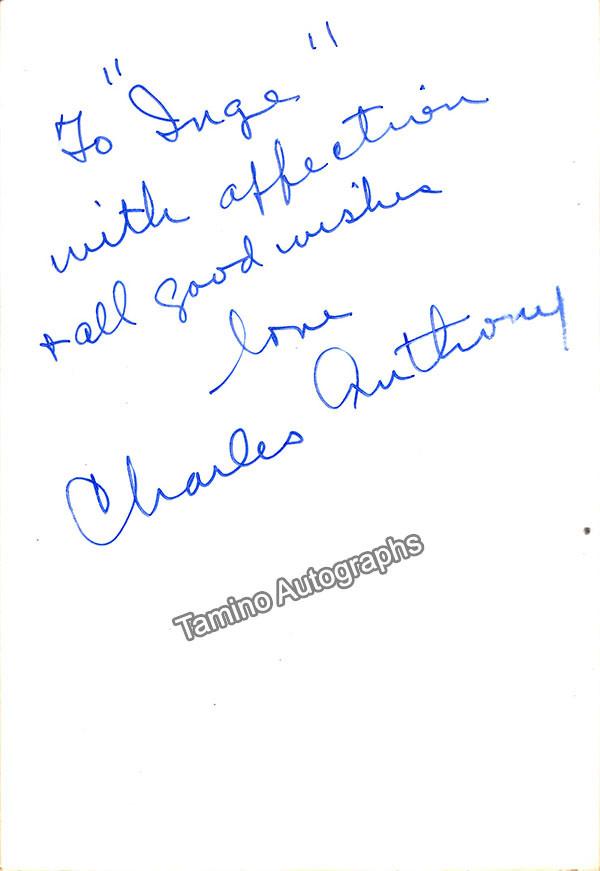 To "Inge"
with affection
+ all good wishes
love
Charles Anthony
Tamino Autographs